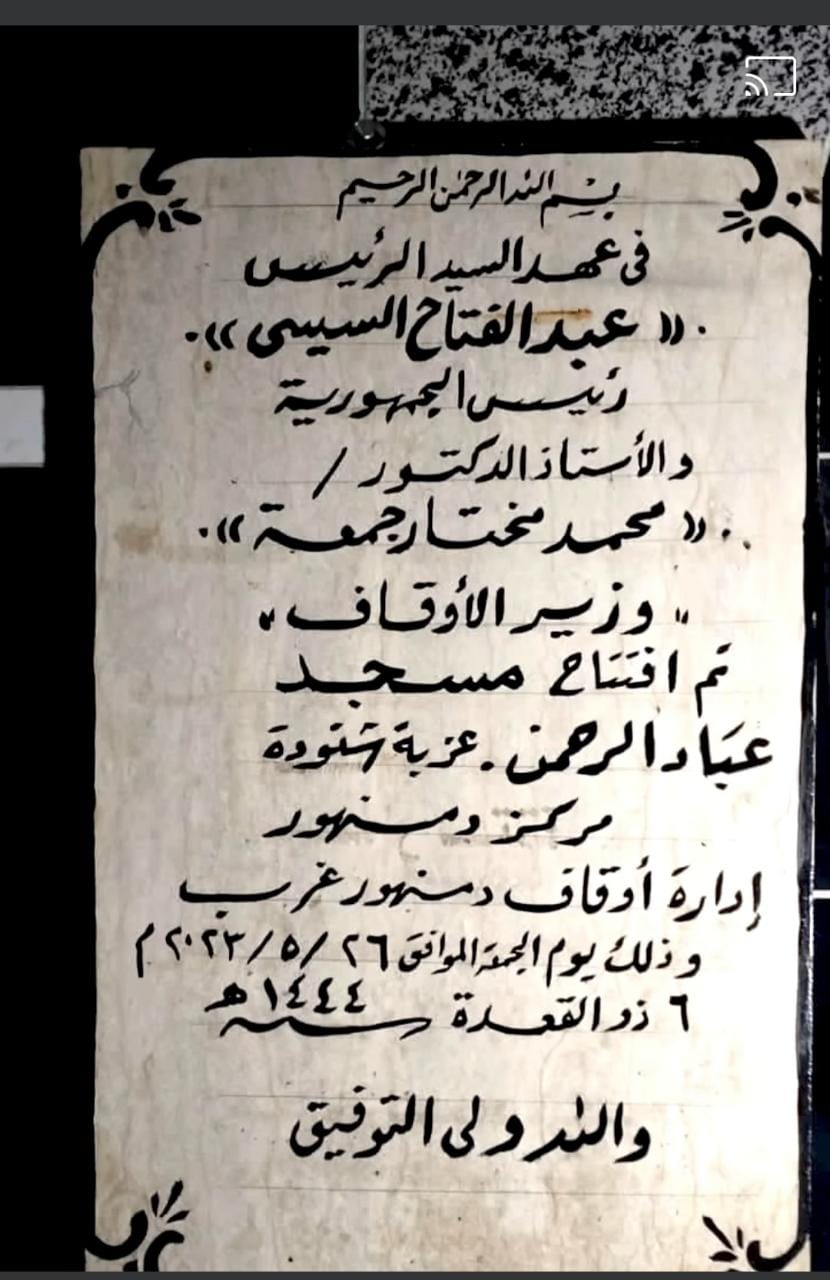 بسم الله الرحمن الرحيم
فى عهد السيد الرئيس
.« عبد الفتاح السيسى ».
رئيس الجمهورية
والأستاذ الدكتور /
.« محمد مختار جمعة ».
" وزير الأوقاف "
تم افتتاح مسجد
عباد الرحمن . عزبة شنودة
مركز دمنهور
إدارة أوقاف دمنهور غرب
وذلك يوم الجمعة الموافق ٢٦ /٥ /٢٠٢٣ م
٦ ذو القعدة سنة ١٤٤٤ هـ
والله ولى التوفيق